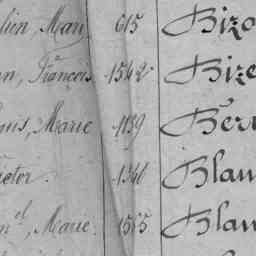 lien, Mari 615 Bizo
an, François 1542 Bize
ouis, Marie 1139 Berr
ictor. 1340 Blan
m.el, Marie. 1565 Blan